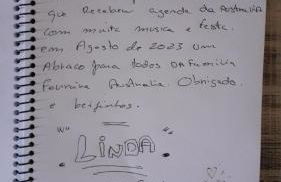 que Recebeu agenda da Australia
com muita musica e festa.
em Agosto de 2023 um
Abraço para todos da Familia
Australia. Obrigado.
e beijinhos.
"LINDA"